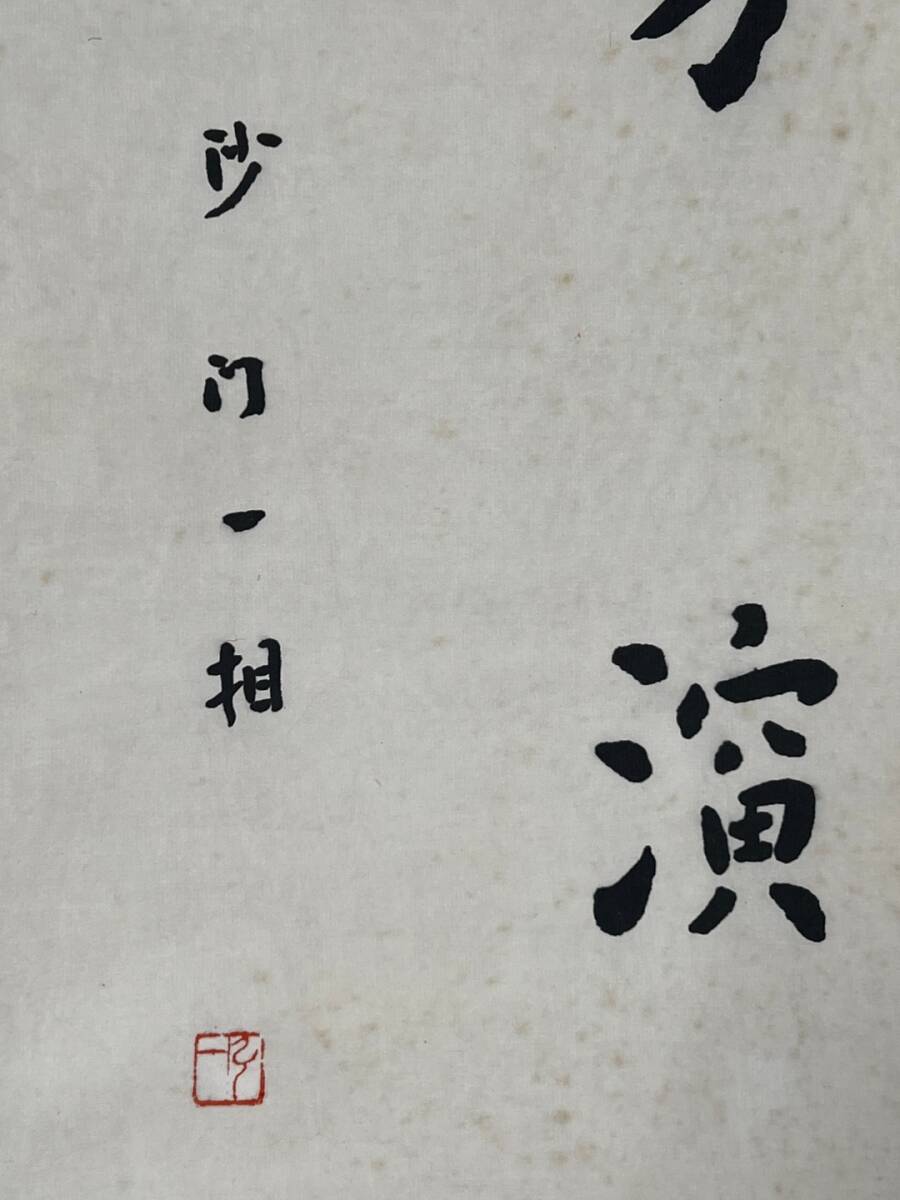 演
沙门一相